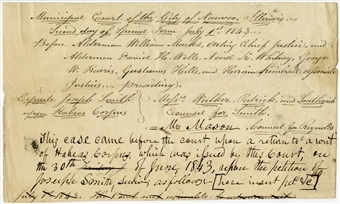 Municipal Court of the City of Nauvoo, Illinois
Third day of Special Term July 1st 1843.
Before Alderman William Marks, acting Chief Justice, and
Alderman Daniel H. Wells, Newel K. Whitney, George
W. Harris, Gustavus Hills, and Hiram Kimball associate
Justices presiding.
Exparte Joseph Smith
upon Habeas Corpus
Messrs Walker, Patrick, and Southwick
Counsel for Smith.
Mr Mason, Counsel for Reynolds
This case came before the court upon a return to a writ
of Habeas Corpus, which was issued by this Court, on
the 30th of June, 1843, upon the petition of
Joseph Smith senior, as follows (Here insert pet &c